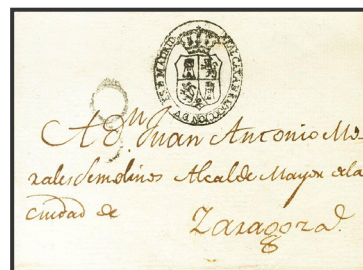 A D.n Juan Antonio Mo-
rales Semolinos Alcalde Mayor de la
ciudad de Zaragoza.